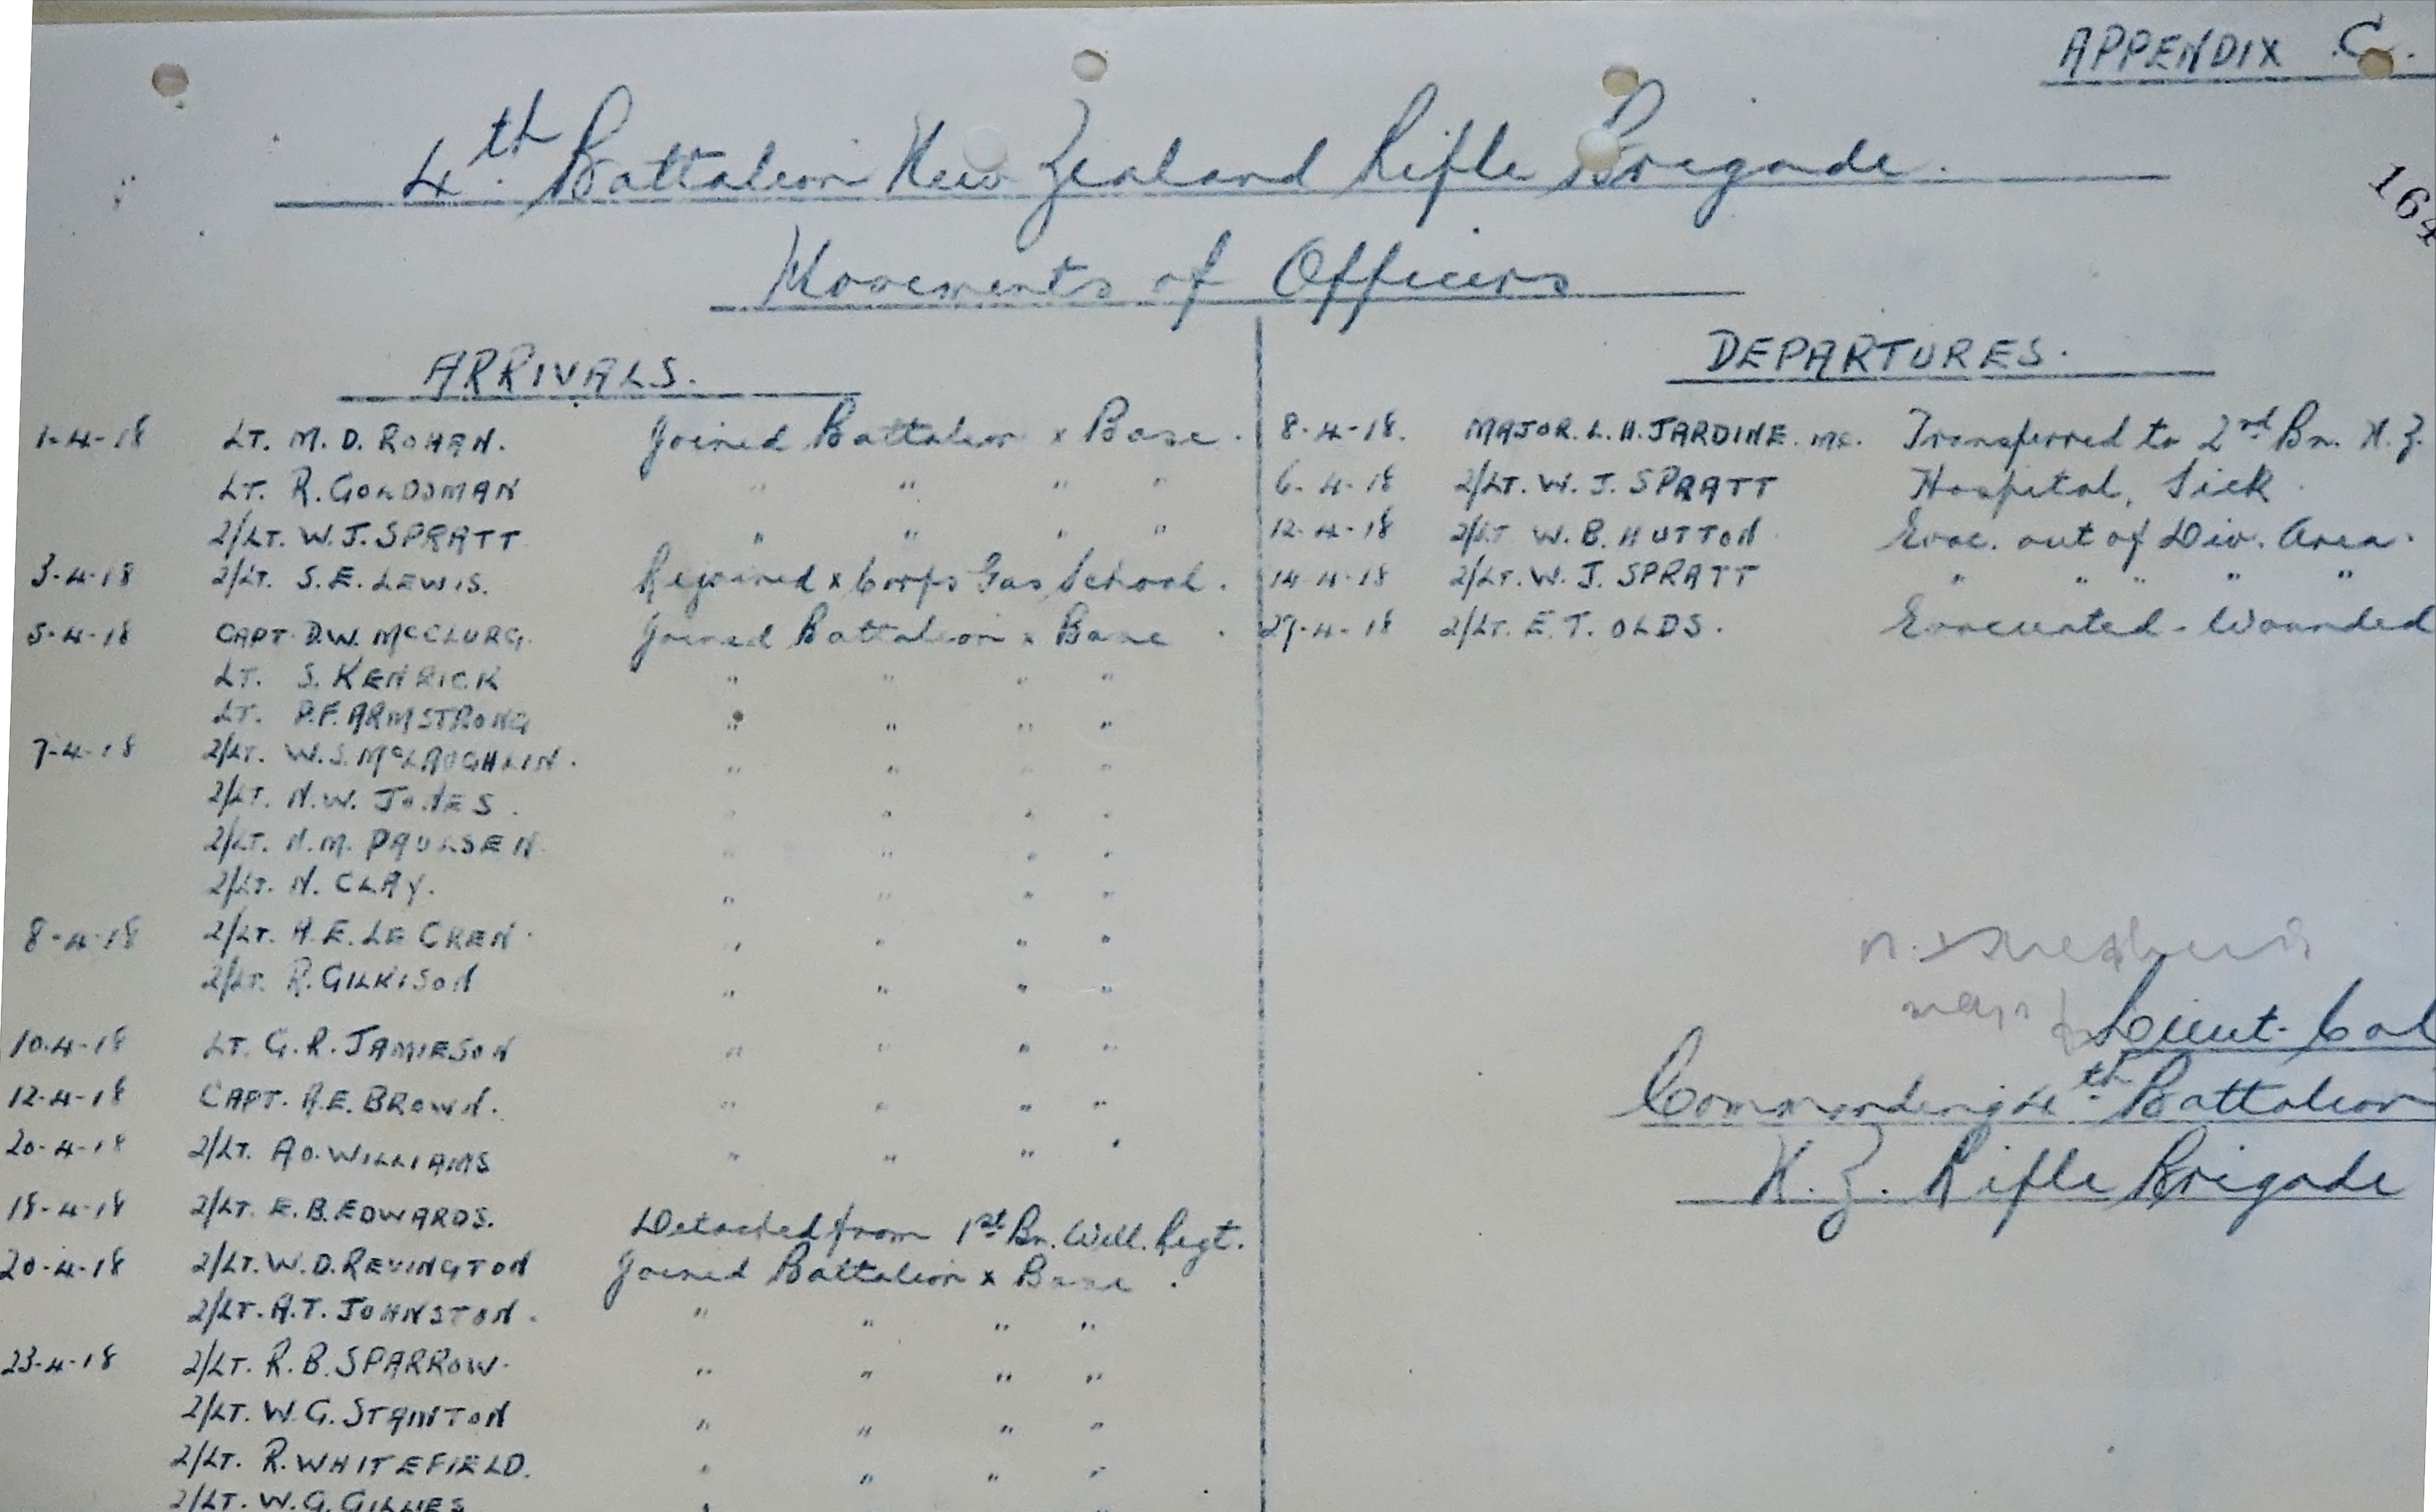 APPENDIX C.
164
4th Battalion New Zealand Rifle Brigade.
Movements of Officers
ARRIVALS.
1-4-18 LT. M. D. ROHAN. Joined Battalion x Base.
LT. R. GOLDSMAN " " " "
2/LT. W. J. SPRATT " " " "
3-4-18 2/LT. S. E. LEWIS. Rejoined x Corps Gas School.
5-4-18 CAPT. D. W. McCLURG. Joined Battalion x Base.
LT. S. KENRICK " " " "
LT. P. F. ARMSTRONG " " " "
7-4-18 2/LT. W. S. McLAUGHLIN. " " " "
2/LT. N. W. JONES. " " " "
2/LT. N. M. PAULSEN. " " " "
2/LT. N. CLAY. " " " "
8-4-18 2/LT. A. E. LE CREN. " " " "
2/LT. R. GILKISON " " " "
10-4-18 LT. G. R. JAMIESON " " " "
12-4-18 CAPT. A. E. BROWN. " " " "
20-4-18 2/LT. A O. WILLIAMS " " " "
18-4-18 2/LT. E. B. EDWARDS. Detached from 1st Bn. Well. Regt.
20-4-18 2/LT. W. D. REVINGTON Joined Battalion x Base.
2/LT. A. T. JOHNSTON. " " " "
23-4-18 2/LT. R. B. SPARROW. " " " "
2/LT. W. G. STAINTON " " " "
2/LT. R. WHITEFIELD. " " " "
2/LT. W. G. GILLIES " "
DEPARTURES.
8-4-18. MAJOR. L. H. JARDINE. MC. Transferred to 2nd Bn. N. Z.
6-4-18 2/LT. W. J. SPRATT Hospital, Sick.
12-4-18 2/LT W. B. HUTTON Evac. out of Div. Area.
14-4-18 2/LT. W. J. SPRATT " " " " "
27-4-18 2/LT. E. T. OLDS. Evacuated - Wounded
Lieut. Col
Commanding 4th Battalion
N. Z. Rifle Brigade